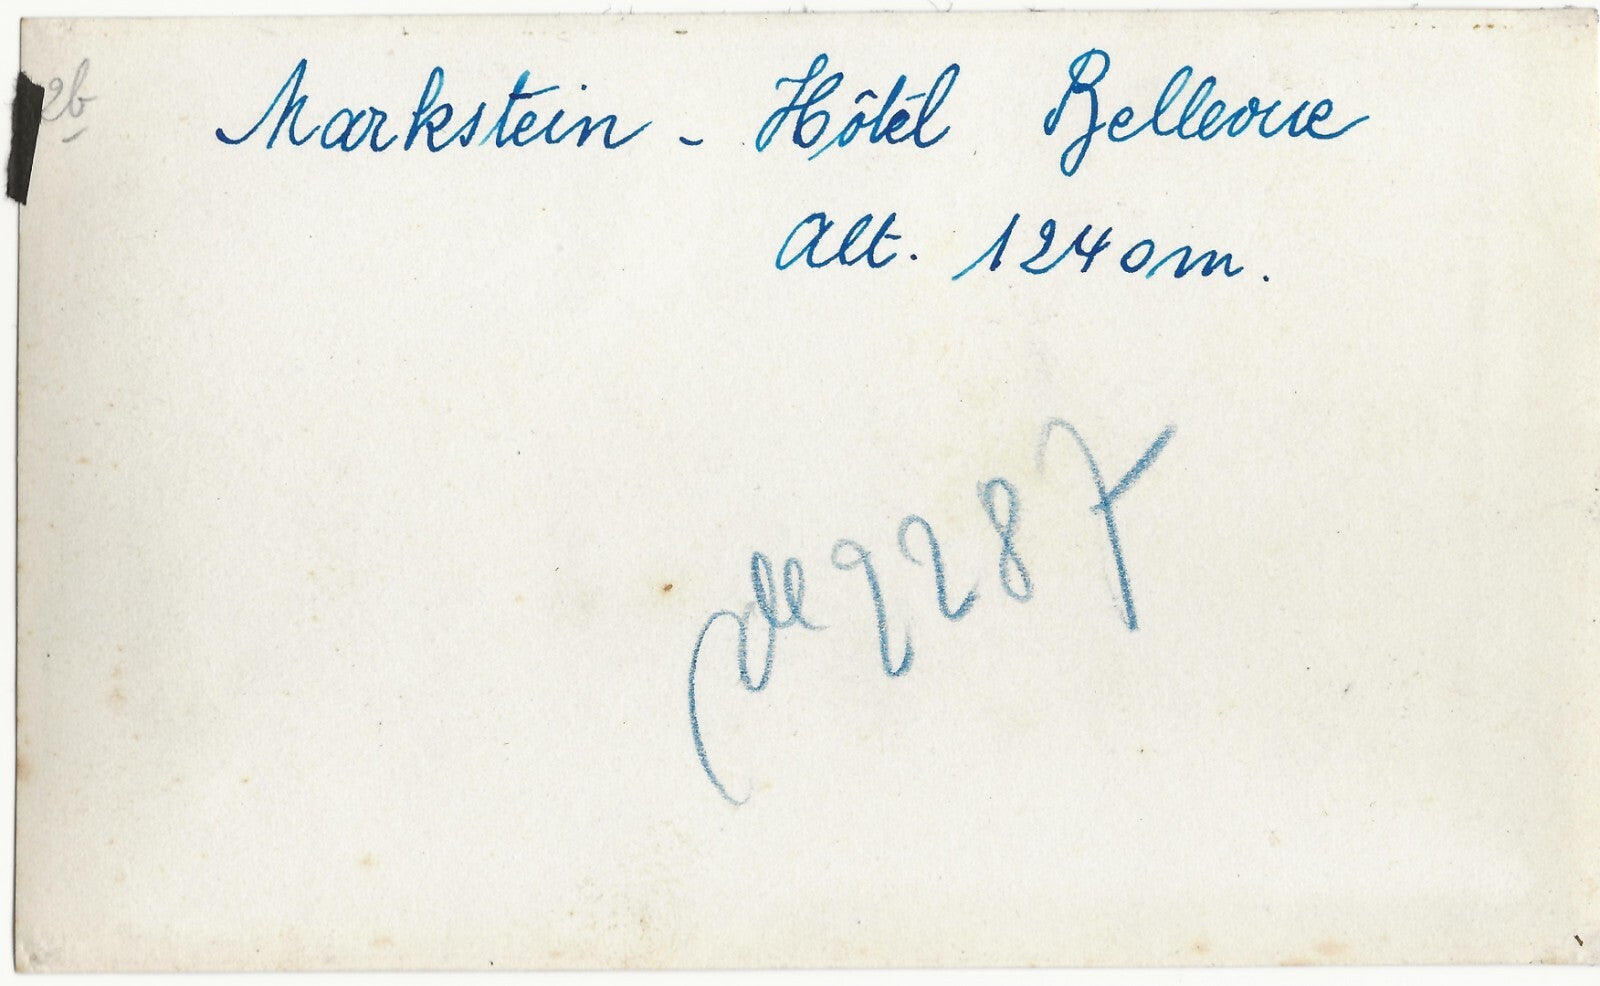 2b
Markstein - Hôtel Bellevue
Alt. 1240m.
9287